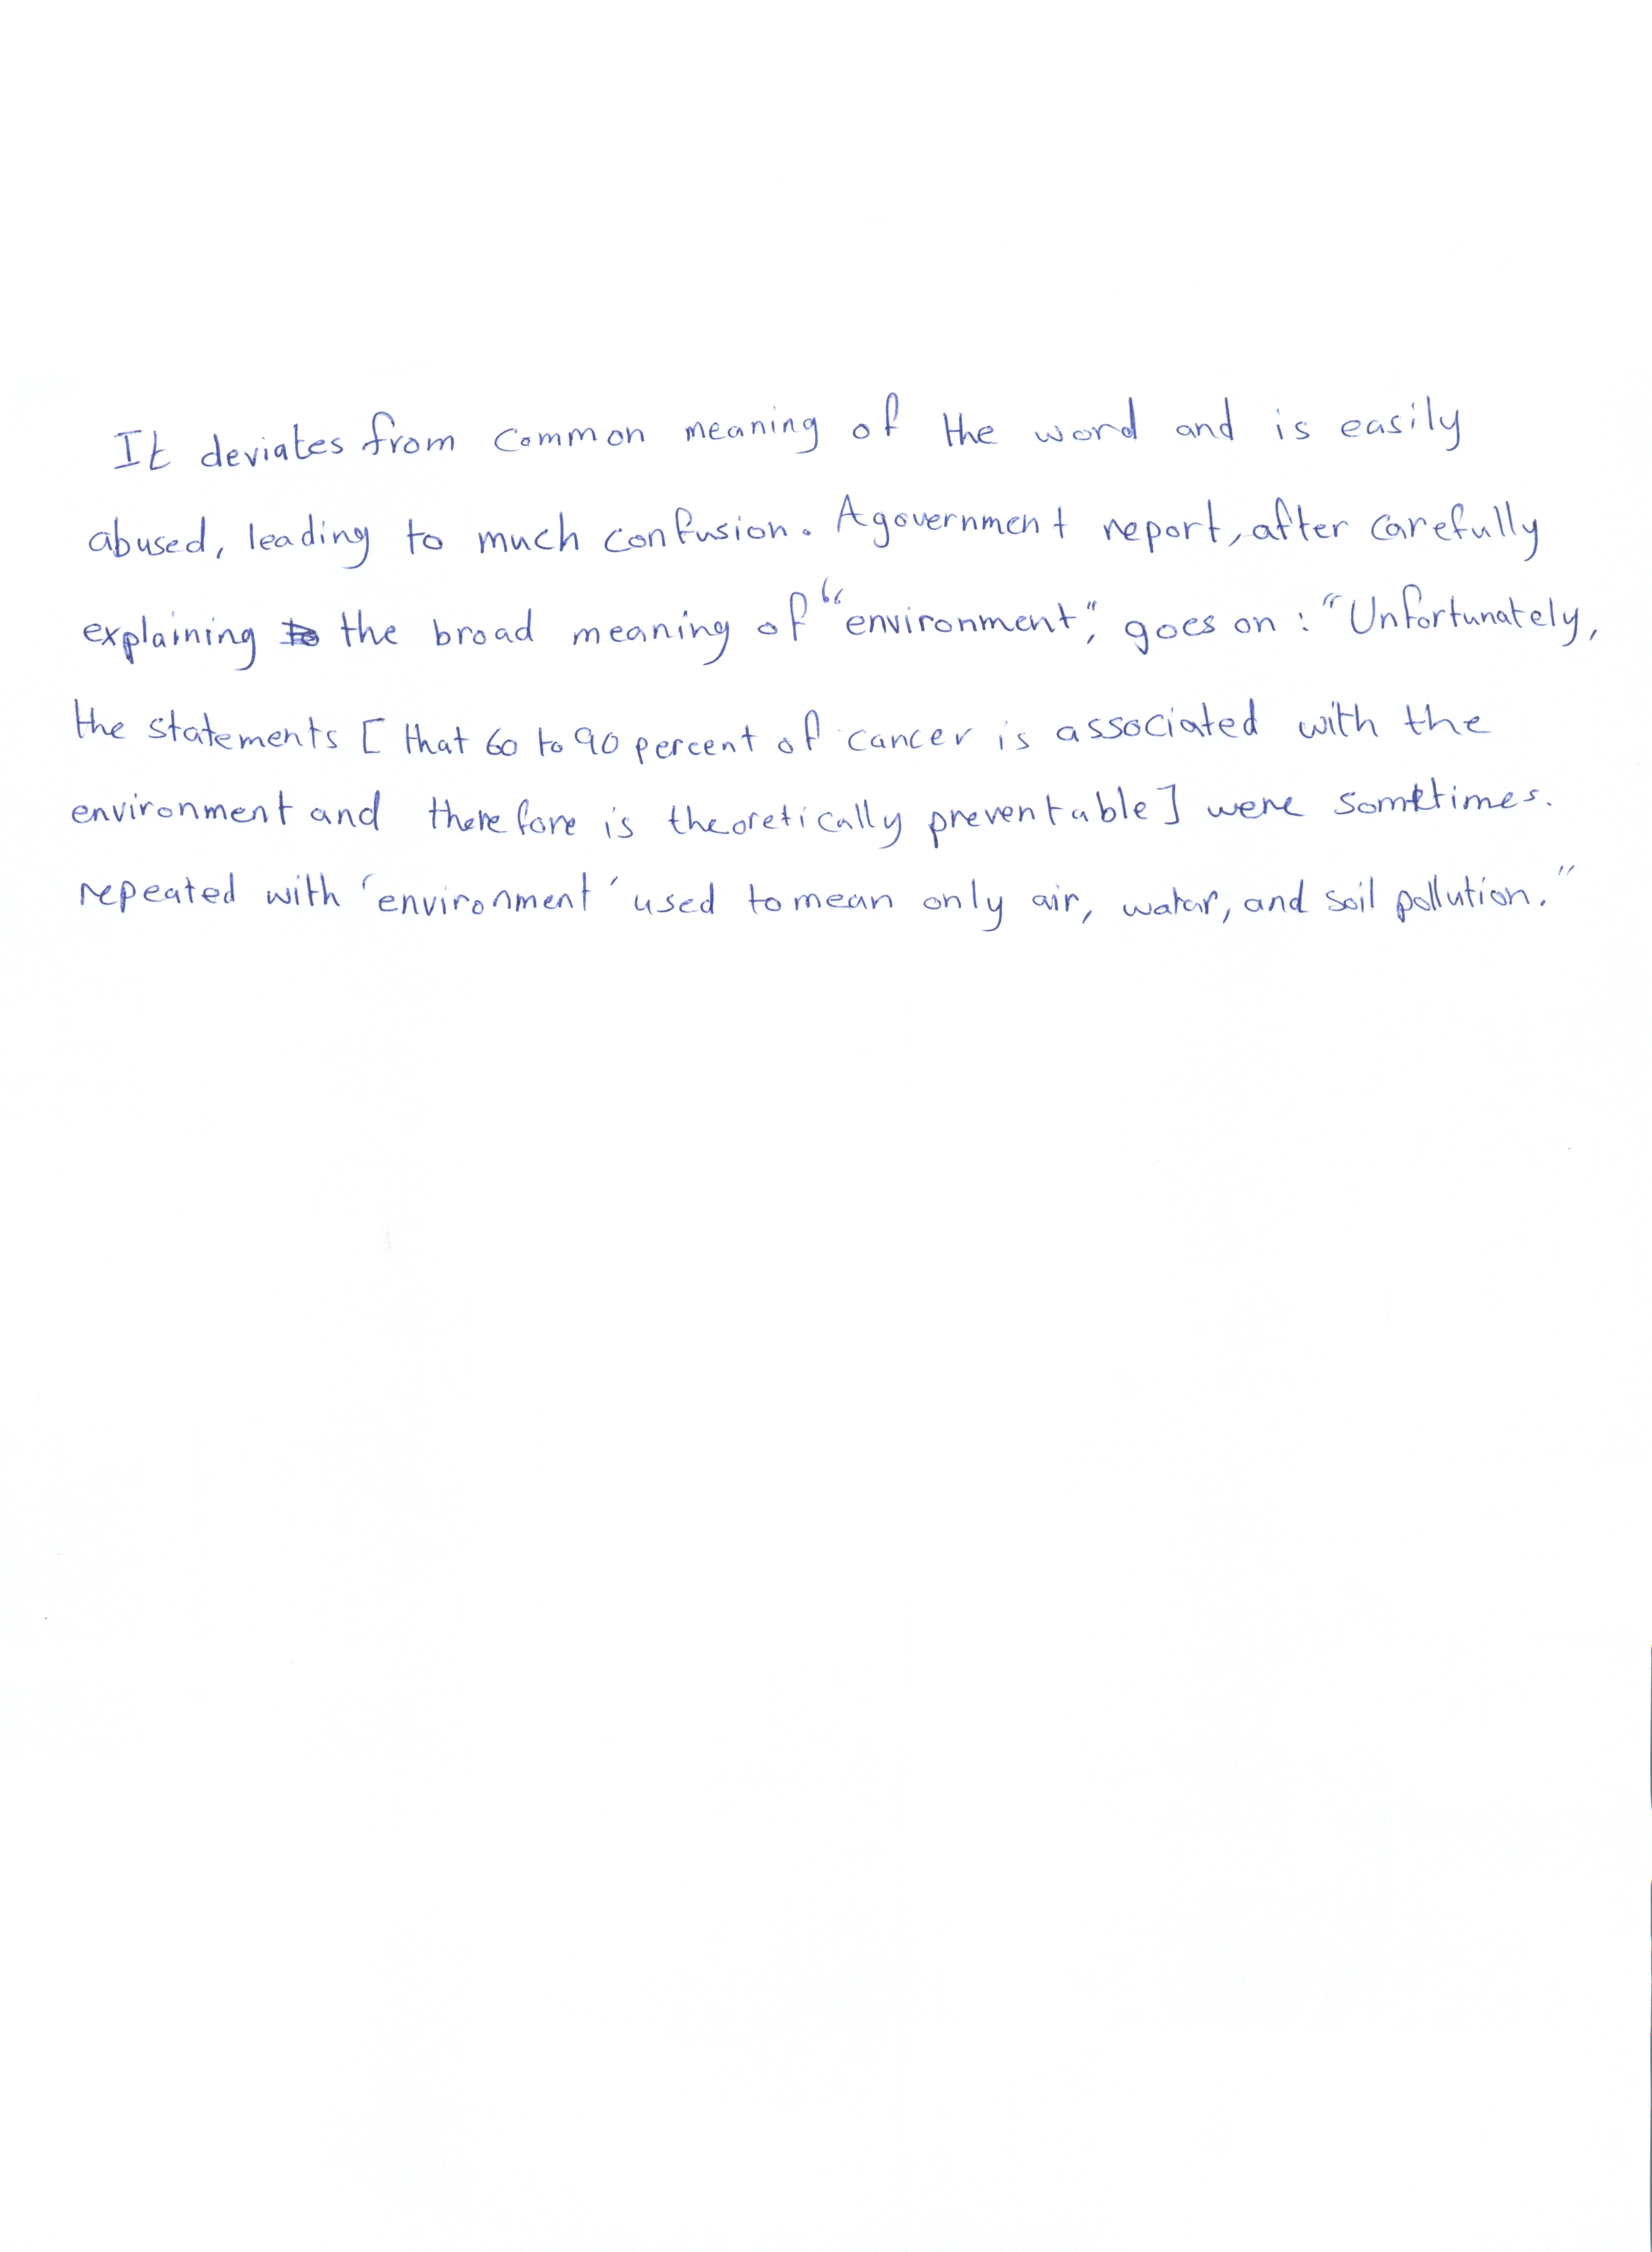 It deviates from common meaning of the word and is easily
abused, leading to much confusion. A government report, after carefully
explaining the broad meaning of "environment", goes on : "Unfortunately,
the statements [ that 60 to 90 percent of cancer is associated with the
environment and therefore is theoretically preventable ] were sometimes.
repeated with 'environment' used to mean only air, water, and soil pollution."